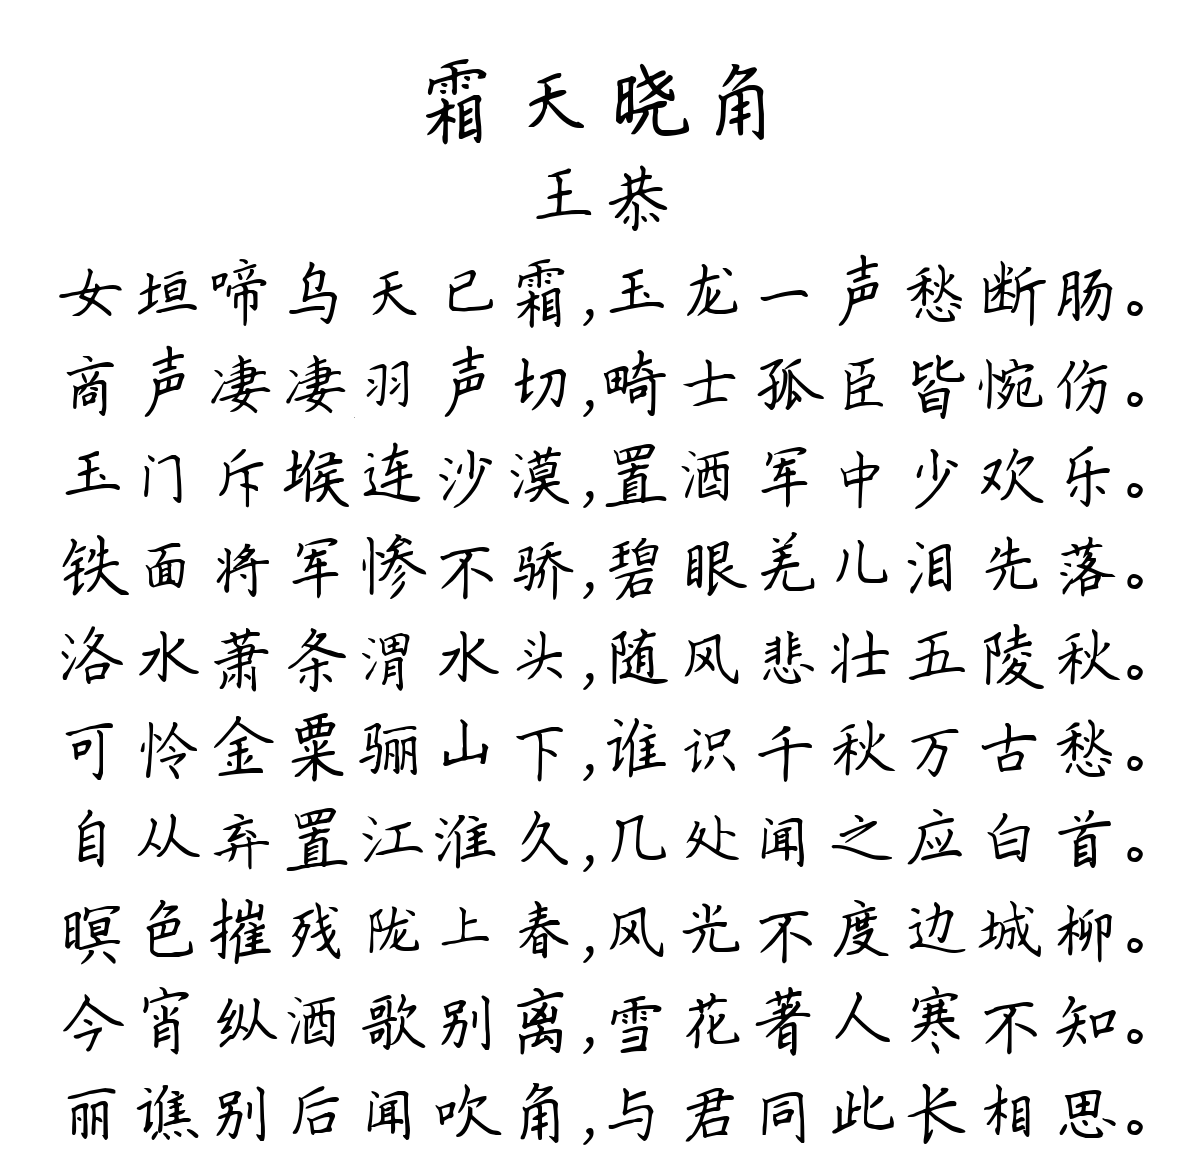 霜天晓角
王恭
女垣啼乌天已霜,玉龙一声愁断肠。
商声凄凄羽声切,畸士孤臣皆惋伤。
玉门斥堠连沙漠,置酒军中少欢乐。
铁面将军惨不骄,碧眼羌儿泪先落。
洛水萧条渭水头,随风悲壮五陵秋。
可怜金粟骊山下,谁识千秋万古愁。
自从弃置江淮久,几处闻之应白首。
暝色摧残陇上春,风光不度边城柳。
今宵纵酒歌别离,雪花著人寒不知。
丽谯别后闻吹角,与君同此长相思。